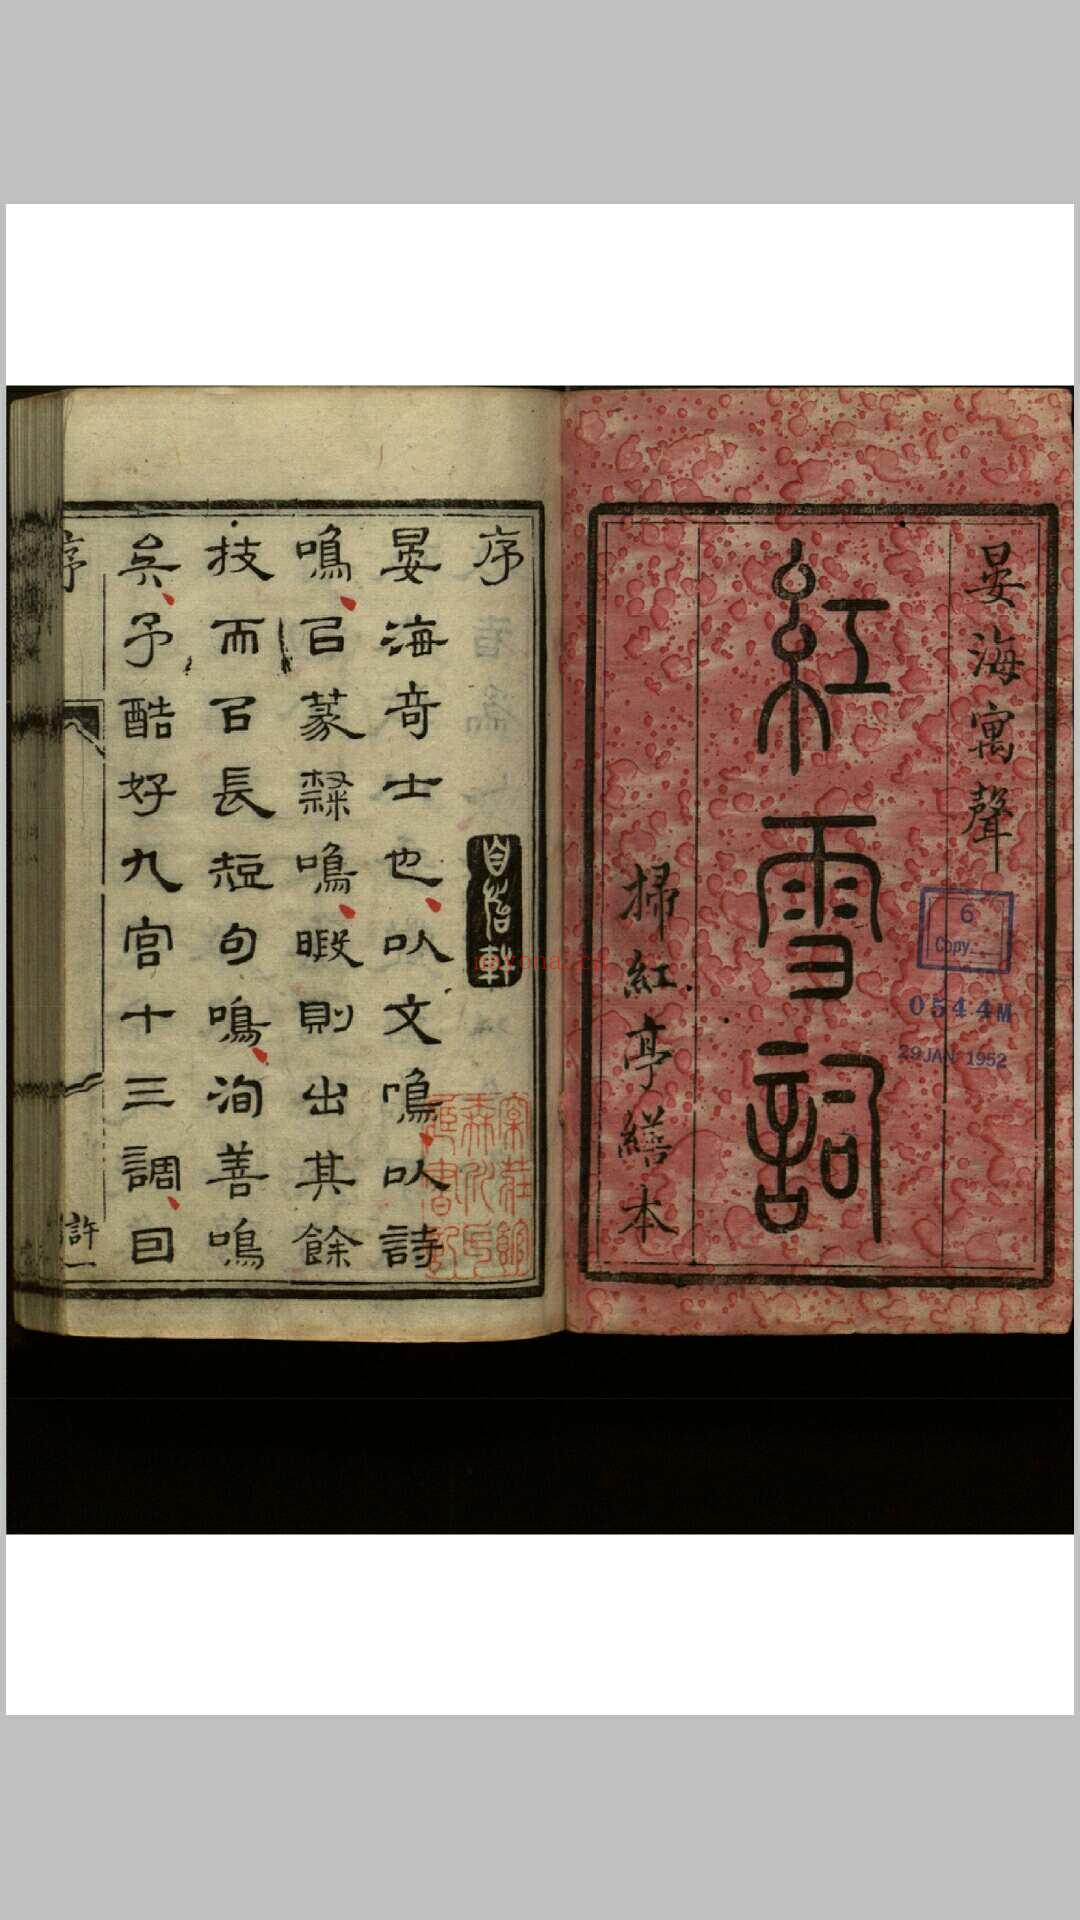 晏海寓聲
紅雪詞
掃紅亭繕本
6
Copy
0544M
29 JAN 1952
序
自怡軒
晏海奇士也以文鳴以詩
鳴㠯篆隸鳴暇則出其餘
技而㠯長短句鳴洵善鳴
矣予酷好九宮十三調曰
序
許一